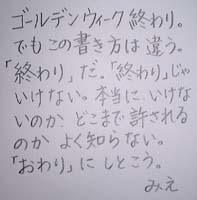 ゴールデンウィーク終わり。
でもこの書き方は違う。
「終わり」だ。「終わり」じゃ
いけない。本当に、いけな
いのか、どこまで許される
のか よく知らない。
「おわり」に しとこう。
みえ